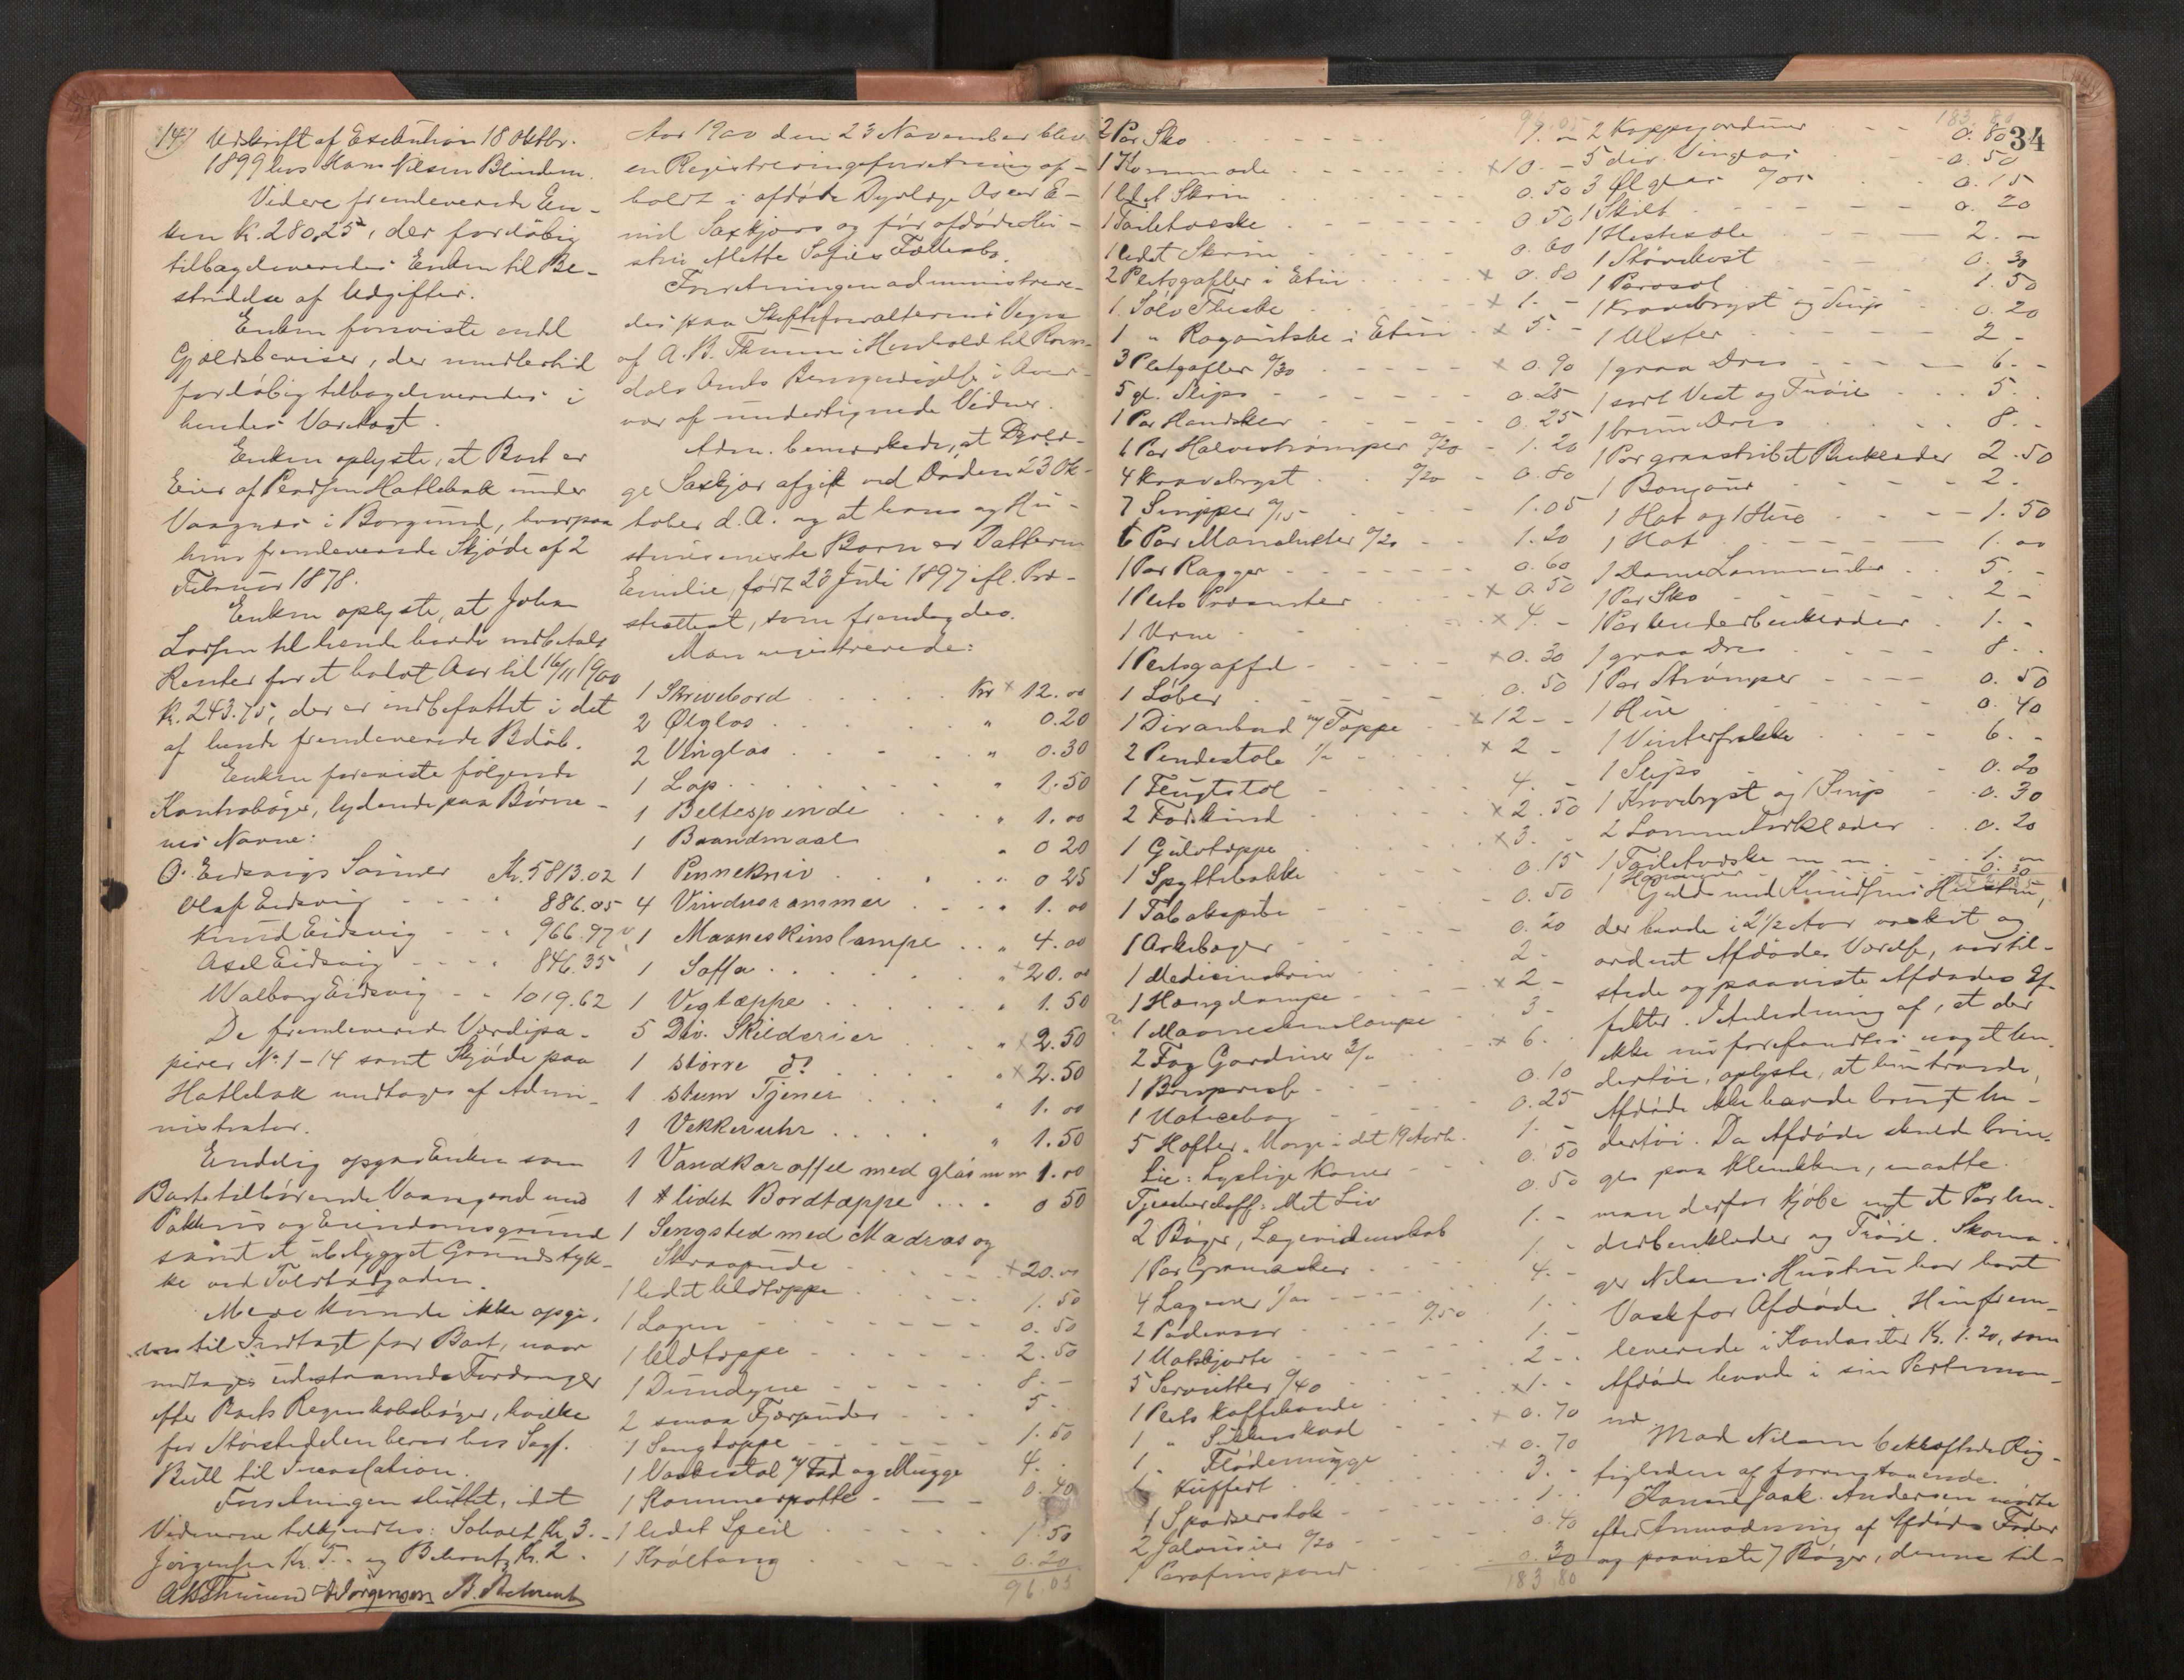 14) Udskrift af Exekution 18 Oktbr.
1899 hos Hans Nilsen Blindem.
Videre fremleverede En-
ken K. 280.25, der foreløbig
tilbageleveredes Enken til Be-
stridelse af Udgifter.
Enken foreviste endel
Gjældsbeviser, der imidlertid
foreløbig tilbageleveredes i
hendes Varetægt.
Enken oplyste, at Boet er
Eier af Pladsen Hatlebak under
Vaagnes i Borgund, hvorpaa
hun fremleverede Skjøde af 2
Februar 1878.
Enken oplyste, at Johan
Larsen til hende havde indbetalt
Renter for et halvt Aar til 16/11 1900
K. 243.75, der er indbefattet i det
af hende fremleverede Beløb.
Enken foreviste følgende
Kontrabøger, lydende paa Børne-
nes Navne:
O. Eidsvigs Sønner Kr. 5813.02
Olaf Eidsvig - - - 886.05
Knud Eidsvig - - - 966.97
Axel Eidsvig - - - 846.35
Walborg Eidsvig - - 1019.62
De fremleverede Værdipa-
pirer No. 1-14 samt Skjøde paa
Hatlebak modtages af Admi-
nistrator.
Endelig opgav Enken som
Boet tilhørende Vaaningen med
Pakhus og Eiendomsgrund
samt et ubebygget Grundstyk-
ke ved Toldbodgaden.
Mere kunde ikke opgi-
ves til Indtægt for Boet, naar
undtages udestaaende Fordringer
efter Boets Regnskabsbøger, hvilke
for Størstedelen beror hos Sagf.
Bull til Incassation.
Forretningen sluttet, idet
Vidnerne tilkjendtes: Solvet Kr. 3.-
Jørgensen Kr. 5.- og Behrentz Kr. 2.-
AB Thunem A Jørgensen B. Behrentz
Aar 1900 den 23 November blev
en Registreringsforretning af-
holdt i afdøde Dyrlæge Oscar E-
mil Saxkjørs og før afdøde Hu-
stru Mette Sofies Fællesbo.
Forretningen administrere-
des paa Skifteforvalterens Vegne
af A. B. Thunem i Henhold til Roms-
dals Amts Bemyndigelse i Over-
vær af undertegnede Vidner.
Adm. bemærkede, at Dyrlæ-
ge Saxkjør afgik ved Døden 23 Ok-
tober d. A. og at hans og Hu-
strues eneste Barn er Datteren
Emilie, født 23 Juli 1897 ifl. Præ-
steattest, som fremlagdes.
Man registrerede:
1 Skrivebord . . . Kr x 12.00
2 Ølglas . . . " 0.20
2 Vinglas . . . " 0.30
1 Lap . . . " 1.50
1 Beltespende . . . " 1.00
1 Baandmaal " 0 20
1 Penneknив . . . " 0 25
4 Vindusrammer . . . " 1.00
1 Maaneskinslampe . . " 4.00
1 Saffa . . . " x 20.00
1 Vegtæppe . . . " 1.50
5 Div. Skilderier . . . " x 2.50
1 større do . . . " x 2.50
1 stum Tjener . . . " 1.00
1 Vekkeruhr . . . " 1.50
1 Vandkaraffel med glas m m 1.00
1 lidet Bordtæppe . . . 0 50
1 Sengsted med Madras og
Skraapude - - - x 20.00
1 lidet Uldtæppe - - - 1.50
1 Lagen - - - 0.50
1 Uldtæppe - - - 2.50
1 Dundyne - - - 8.-
2 smaa Fjærpuder - - - 5.-
1 Sengtæppe - - - 1.50
1 Vaskestol m/ Fad og Mugge 4.-
1 Kammerpotte - - - 0.40
1 lidet Speil - - - 1.50
1 Krøltang - - - 0.20
96.05
34
96.05
2 Par Sko - - - 7.-
1 Kommode - - - x 10.-
1 lidet Skrin - - - 0.50
1 Toiletæske - - - 0.50
1 lidet Skrin - - - 0.60
2 Pletsgafler i Etui - - - x 0.80
1 Sølv Theske - - - x 1.-
1 " Ragoutske i Etui x 5.-
3 Pletgafler 0/30 - - - x 0.90
5 gl. Slips - - - 0.25
1 Par Handsker - - - 0.25
6 Par Halvestrømper 0/20 - 1.20
4 Kravebryst . . 0/20 - 0.80
7 Snipper 0/15 - - - 1.05
6 Par Manchetter 0/20 - - 1.20
1 Par Ragger - - - 0.60
1 Plets - - - x 0.50
1 Urne - - - x 4.-
1 Pletsgaffel - - - x 0.30
1 Løber - - - 0.50
1 Divanbord m/ Tæppe x 12.-
2 Pindestole 1/- x 2.-
1 Gyngstol - - - 4.-
2 Faarskind - - - x 2.50
1 Gulvtæppe - - - x 3.-
1 Spyttebakke - - - 0.15
1 Tobakspibe - - - 0.50
1 - - - 0.20
1 Medicinskrin - - - 2.-
1 Hængelampe - - - x 2.-
1 Maaneskinslampe - - 3.-
2 Fag Gardiner 3/- - - x 6.-
1 - - - 0.10
1 Noticebog - - - 0.25
5 Hefter. Norge i det 19 Aarh. 1.-
Lie: Lystige Koner - - 0.50
: Mit Liv 0.50
2 Bøger, Lægevidenskab 1.-
1 Par Gamascher - - - 1.-
4 Lagener 1/00 - - - 4.-
2 Puder - - - 0/50 1.-
1 Natskjorte - - - 1.-
5 Servietter 0/40 - - - 2.-
1 Plets Kaffekande - - - x 1.-
1 " Sukkerskaal - - - x 0.70
1 " Flødemugge - - - x 0.70
1 Kuffert - - - 3.-
1 Spaserstok - - - 1.-
2 Jalousier 0/20 - - - 0.40
1 Parafinspand - - - 0.30
183.80
183.80
2 Kappegardiner - - 0.80
5 div. Vinglas - - 0.50
3 Ølglas 0/05 - - 0.15
1 Skilt - - - 0.20
1 Hestesæle - - - 2.-
1 Støvekost - - - 0.30
1 Parasol - - - 1.50
1 Kravebryst og Snip - 0.20
1 Ulster - - - 2.-
1 graa Dres - - - 6.-
1 sort Vest og Trøie . . . 5.-
1 brun Dres . . . 8.-
1 Par graastribet Benklæder 2.50
1 Bonjour - - - 2.-
1 Hat og 1 Hue - - - 1.50
1 Hat - - - 1.00
1 Dame Lommeuhr . . 5.-
1 Par Sko - - - 2.-
1 Par Underbenklæder . 1.-
1 graa Dres - - - 8.-
1 Par Strømper - - - 0.50
1 Hue - - - 0.40
1 Vinterfrakke - - - 6.-
1 Slips - - - 0.20
1 Kravebryst og 1 Snip - 0.30
2 Lommetørklæder . . 0.20
1 Toiletæske m m . . 1.00
1 Hammer - - - 0.30
Gulds med Knudsens Hustru,
der havde i 2 1/2 Aar vasket og
ordnet Afdødes Værelse, var til-
stede og paaviste Afdødes Ef-
fekter. I Anledning af, at der
ikke nu forefandtes noget Un-
dertøi, oplyste, at hun troede,
Afdøde ikke havde brugt Un-
dertøi. Da Afdøde skulde brin-
ges paa Klinikken, maatte
man derfor kjøbe nyt et Par Un-
derbenklæder og Trøie. Skoma-
ger Nilsens Hustru har havt
Vask for Afdøde. Hun frem-
leverede i Kontanter Kr. 1.20, som
Afdøde havde i sin Portemon-
næ.
Mad Nilsen bekræftede Rig-
tigheden af foranstaaende.
Isak Andersen mødte
efter Anmodning af Afdødes Fader
og paaviste 7 Bøger, denne til-